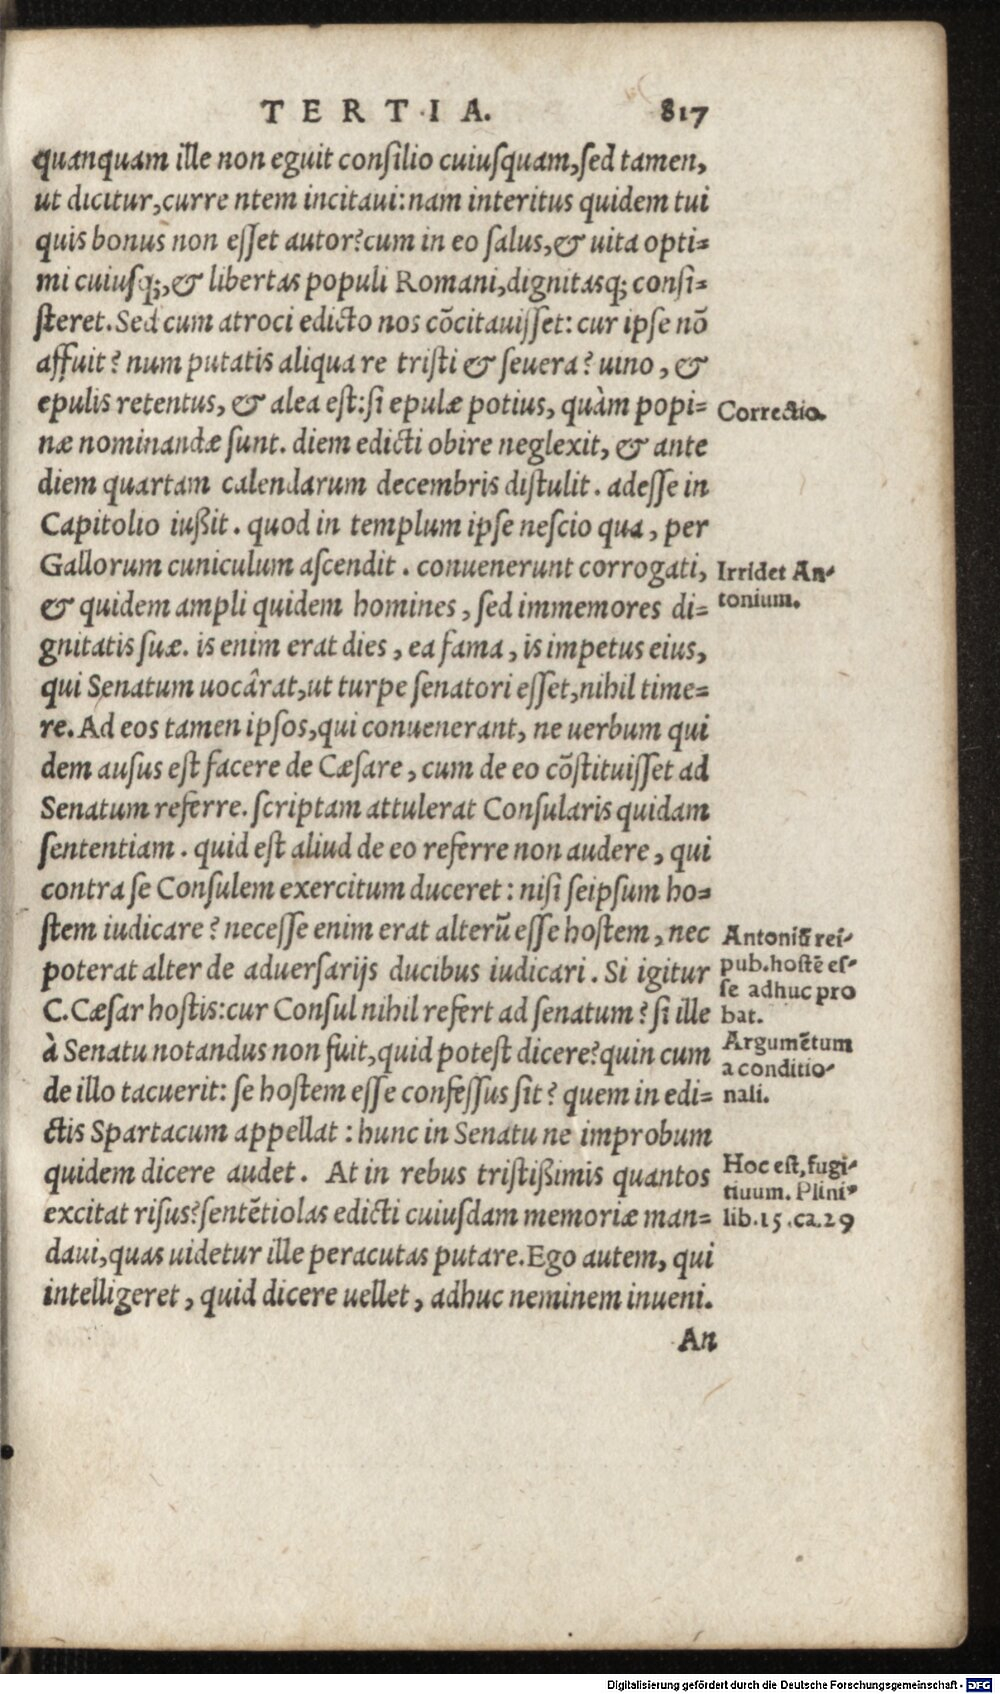 TERTIA. 817
quanquam ille non eguit consilio cuiusquam, sed tamen,
ut dicitur, curre ntem incitaui: nam interitus quidem tui
quis bonus non esset autor? cum in eo salus, & uita opti=
mi cuiusq;, & libertas populi Romani, dignitasq; consi=
steret. Sed cum atroci edicto nos cōcitauisset: cur ipse nō
affuit? num putatis aliqua re tristi & seuera? uino, &
epulis retentus, & alea est: si epulæ potius, quàm popi=
Correctio.
næ nominandæ sunt. diem edicti obire neglexit, & ante
diem quartam calendarum decembris distulit. adesse in
Capitolio iußit. quod in templum ipse nescio qua, per
Gallorum cuniculum ascendit. conuenerunt corrogati,
Irridet An-
& quidem ampli quidem homines, sed immemores di=
tonium.
gnitatis suæ. is enim erat dies, ea fama, is impetus eius,
qui Senatum uocârat, ut turpe senatori esset, nihil time=
re. Ad eos tamen ipsos, qui conuenerant, ne uerbum qui
dem ausus est facere de Cæsare, cum de eo cōstituisset ad
Senatum referre. scriptam attulerat Consularis quidam
sententiam. quid est aliud de eo referre non audere, qui
contra se Consulem exercitum duceret: nisi seipsum ho=
stem iudicare? necesse enim erat alterū esse hostem, nec
Antoniū rei-
poterat alter de aduersarijs ducibus iudicari. Si igitur
pub. hostē es-
se adhuc pro
C. Cæsar hostis: cur Consul nihil refert ad senatum? si ille
bat.
à Senatu notandus non fuit, quid potest dicere? quin cum
Argumētum
a conditio-
de illo tacuerit: se hostem esse confessus sit? quem in edi=
nali.
ctis Spartacum appellat: hunc in Senatu ne improbum
quidem dicere audet. At in rebus tristißimis quantos
Hoc est, fugi-
tiuum. Plini-
excitat risus? sentētiolas edicti cuiusdam memoriæ man=
lib. 15. ca. 29
daui, quas uidetur ille peracutas putare. Ego autem, qui
intelligeret, quid dicere uellet, adhuc neminem inueni.
An
Digitalisierung gefördert durch die Deutsche Forschungsgemeinschaft - DFG